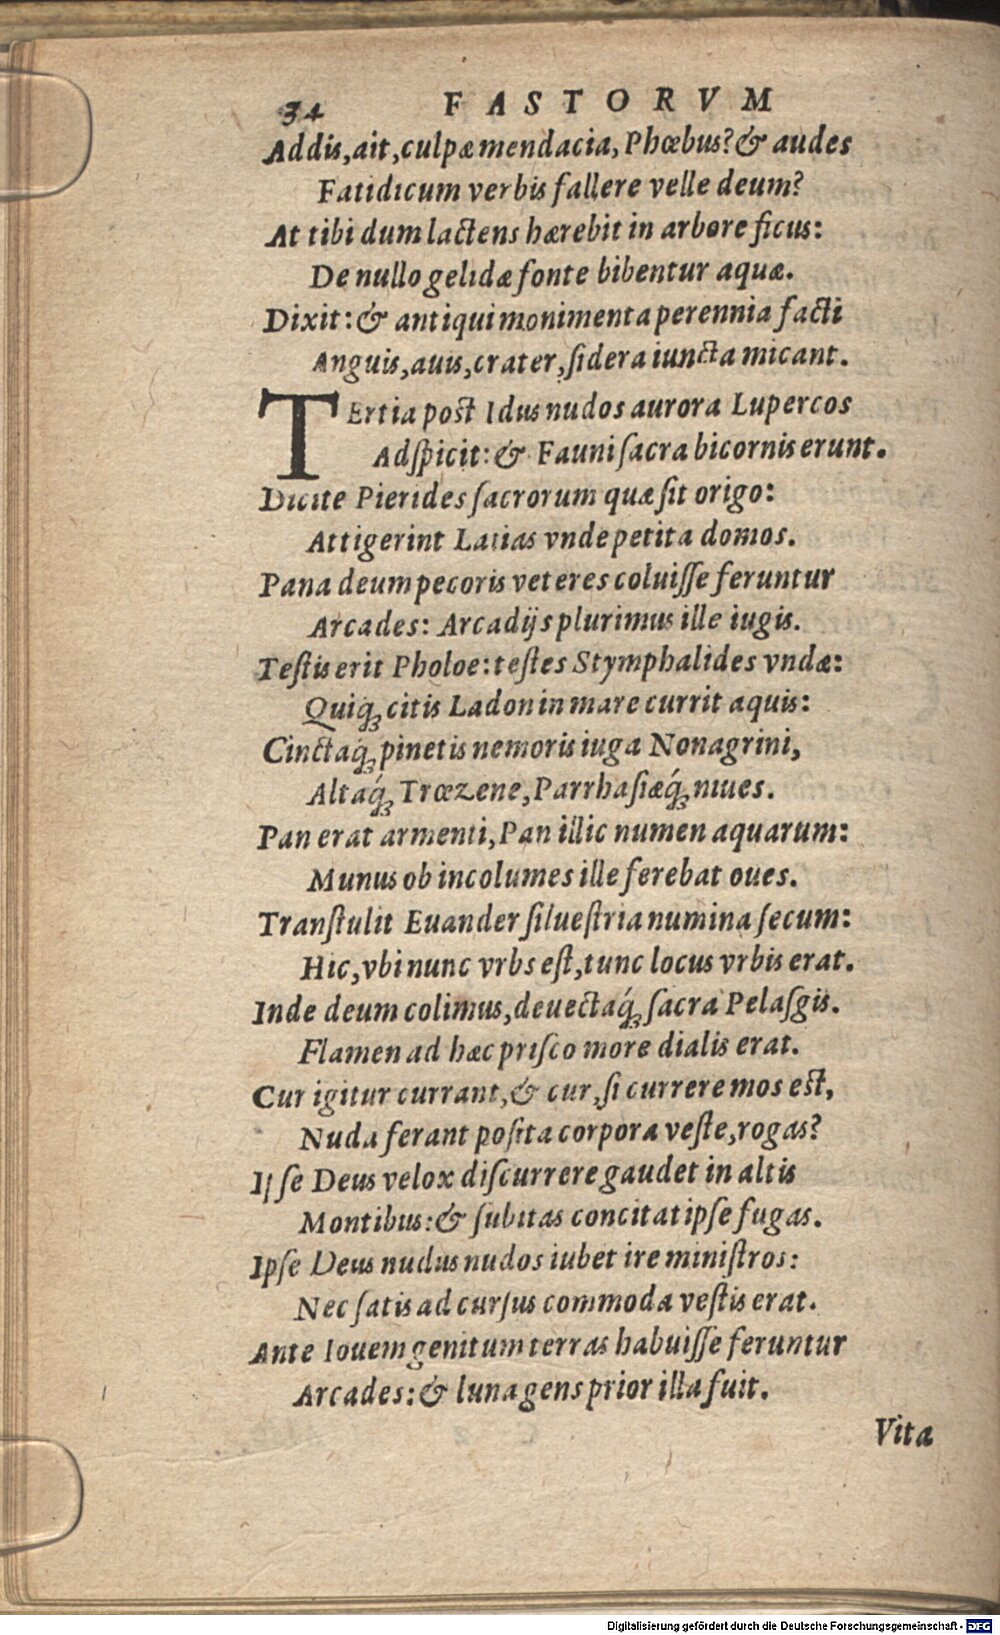 34 FASTORVM
Addis, ait, culpæ mendacia, Phœbus? & audes
Fatidicum verbis fallere velle deum?
At tibi dum lactens hærebit in arbore ficus:
De nullo gelidæ fonte bibentur aquæ.
Dixit: & antiqui monimenta perennia facti
Anguis, auis, crater, ſidera iuncta micant.
TErtia poſt Idus nudos aurora Lupercos
Adſpicit: & Fauni ſacra bicornis erunt.
Dicite Pierides ſacrorum quæ ſit origo:
Attigerint Latias vnde petita domos.
Pana deum pecoris veteres coluiſſe feruntur
Arcades: Arcadijs plurimus ille iugis.
Teſtis erit Pholoe: teſtes Stymphalides vndæ:
Quiq́ꝫ citis Ladon in mare currit aquis:
Cinctaq́ꝫ pinetis nemoris iuga Nonagrini,
Altaq́ꝫ Trœzene, Parrhaſiæq́ꝫ niues.
Pan erat armenti, Pan illic numen aquarum:
Munus ob incolumes ille ferebat oues.
Tranſtulit Euander ſilueſtria numina ſecum:
Hic, vbi nunc vrbs eſt, tunc locus vrbis erat.
Inde deum colimus, deuectaq́ꝫ ſacra Pelaſgis.
Flamen ad hæc priſco more dialis erat.
Cur igitur currant, & cur, ſi currere mos eſt,
Nuda ferant poſita corpora veſte, rogas?
Ipſe Deus velox diſcurrere gaudet in altis
Montibus: & ſubitas concitat ipſe fugas.
Ipſe Deus nudus nudos iubet ire miniſtros:
Nec ſatis ad curſus commoda veſtis erat.
Ante Iouem genitum terras habuiſſe feruntur
Arcades: & luna gens prior illa fuit.
Vita
Digitalisierung gefördert durch die Deutsche Forschungsgemeinschaft - DFG